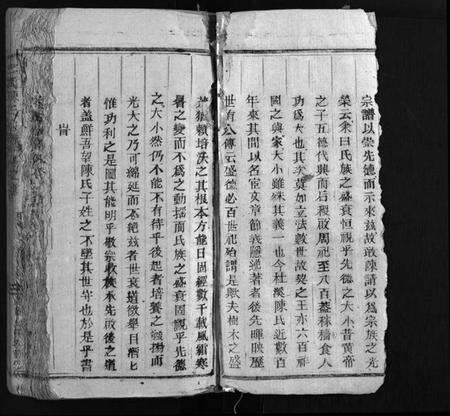 宗譜以崇先德而示來茲故敢陳請以為宗族之光
榮云余曰氏族之盛衰恒視乎先德之大小昔黃帝
之子五德代興而后稷啟周祀至八百蓋稼穡食人
功為大也其次莫如立法教世故契之王亦六百祀
國之與家大小雖殊其義一也今杜溪陳氏近數百
年來其間以名宦文章節義隱逸著者後先暉映歷
世有人傳云盛德必百世祀殆謂是歟夫樹木之盛
賴培沃之其根本方能日固經數千載風霜寒
暑之變而不為之動搖而氏族之盛衰固視乎先德
之大小然仍不能不有待乎後起者培養之
光大之乃可綿延而不絕茲者世衰道微舉目
惟功利之是圖其能明乎敬宗收族承先啟後之道
者蓋鮮吾望陳氏子姓之不墜其世守也於是乎書